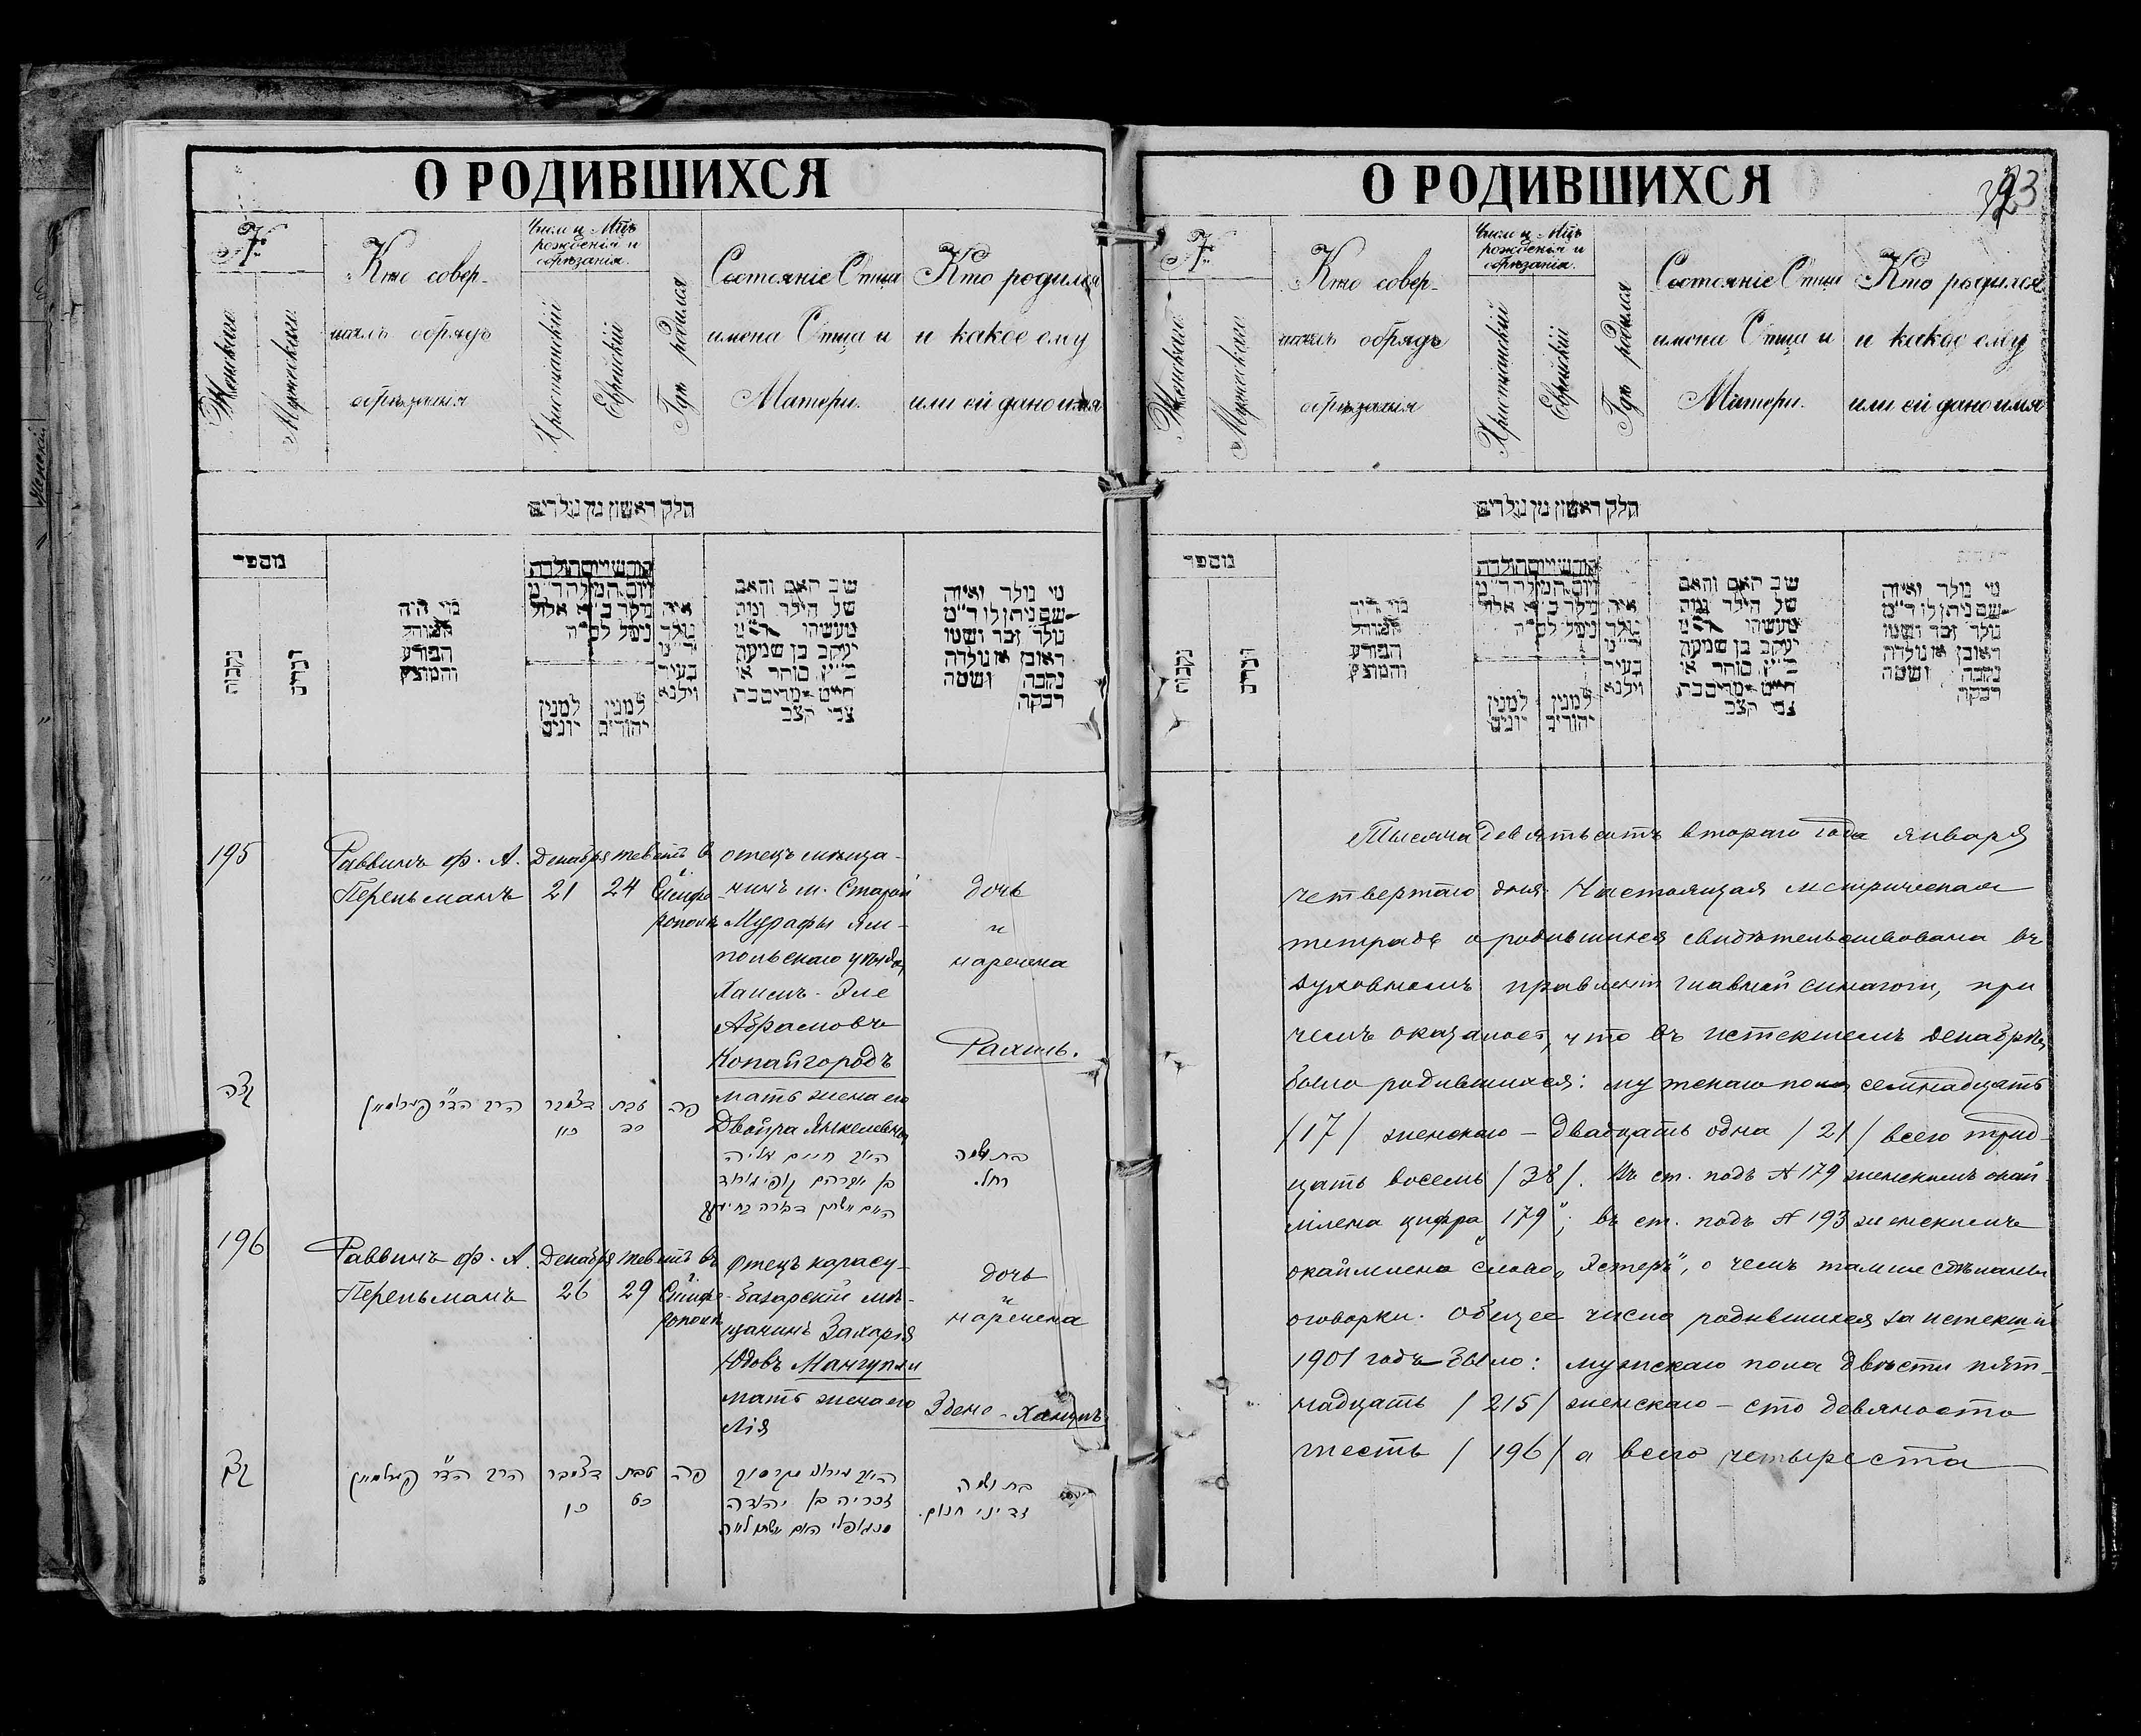 О РОДИВШИХСЯ
№
Женскаго.
Мужескаго.
Кто совер-
шалъ обрядъ
обрѣзанія
Число и Мѣц.
рожденія и
обрѣзанія.
Христіанскій
Еврейскій
Гдѣ родился
Состояніе Отца
имена Отца и
Матери.
Кто родился
и какое ему
или ей дано имя
חלק ראשון מן נולדים
מספר
נקבות
זכרים
מי היה
המוהל
הפורע
והמוצץ
למנין
יונים
למנין
יהודים
איה
נולד
בעיר
ווילנא
שם האם והאם
של הילד ומה
מעשהו
יעקב בן שמעה
כ״ץ סוחר או
חייט מרים בת
צבי קצב
מי נולד ואיזה
שם ניתן לו ד״מ
נולד זכר ושמו
ראובן או נולדה
נקבה ושמה
רבקה
195
Раввинъ ф. А.
Перельманъ
Декабря
21
теветъ
24
въ
Симфе
рополѣ
отецъ мѣща-
нинъ м. Старой
Мурафы Ям-
польскаго уѣзда,
Хаимъ-Эле
Абрамовъ
Копайгородъ
мать жена его
Двойра Янкелевна
дочь
и
наречена
Рахиль.
קצה
דצמבר
טבת
פה
חיים אליה
בן אברהם
רחל.
196
Раввинъ ф. А.
Перельманъ
Декабря
26
теветъ
29
въ
Симфе
рополѣ
Отецъ карасу-
базарскій мѣ-
щанинъ Захарія
Юдовъ Мангупли
мать жена его
Лія
дочь
и
наречена
Здено-Ханумъ
קצו
דצמבר
כו
טבת
כט
פה
זכריה בן יהודה
О РОДИВШИХСЯ
93
№
Женскаго.
Мужескаго.
Кто совер-
шалъ обрядъ
обрѣзанія
Число и Мѣц.
рожденія и
обрѣзанія.
Христіанскій
Еврейскій
Гдѣ родился
Состояніе Отца
имена Отца и
Матери.
Кто родился
и какое ему
или ей дано имя
חלק ראשון מן נולדים
מספר
נקבות
זכרים
מי היה
המוהל
הפורע
והמוצץ
למנין
יונים
למנין
יהודים
איה
נולד
בעיר
ווילנא
שם האם והאם
של הילד ומה
מעשהו
יעקב בן שמעה
כ״ץ סוחר או
חייט מרים בת
צבי קצב
מי נולד ואיזה
שם ניתן לו ד״מ
נולד זכר ושמו
ראובן או נולדה
נקבה ושמה
רבקה
Тысяча девятьсотъ втораго года января
четвертаго дня. Настоящая метрическая
тетрадь о родившихся свидѣтельствована въ
духовномъ правленіи главной синагоги, при
чемъ оказалось, что въ истекшемъ декабрѣ,
было родившихся: мужскаго пола семнадцать
/17/ женскаго — двадцать одна /21/ всего трид-
цать восемь /38/. Въ ст. подъ № 179 женскимъ окай-
млена цифра „179"; въ ст. подъ № 193 женскимъ
окаймлено слово „Эстеръ", о чемъ тамже сдѣланы
оговорки. Общее число родившихся за истекшій
1901 годъ было: мужскаго пола двѣсти пят-
надцать /215/ женскаго — сто девяносто
шесть /196/ а всего четыреста